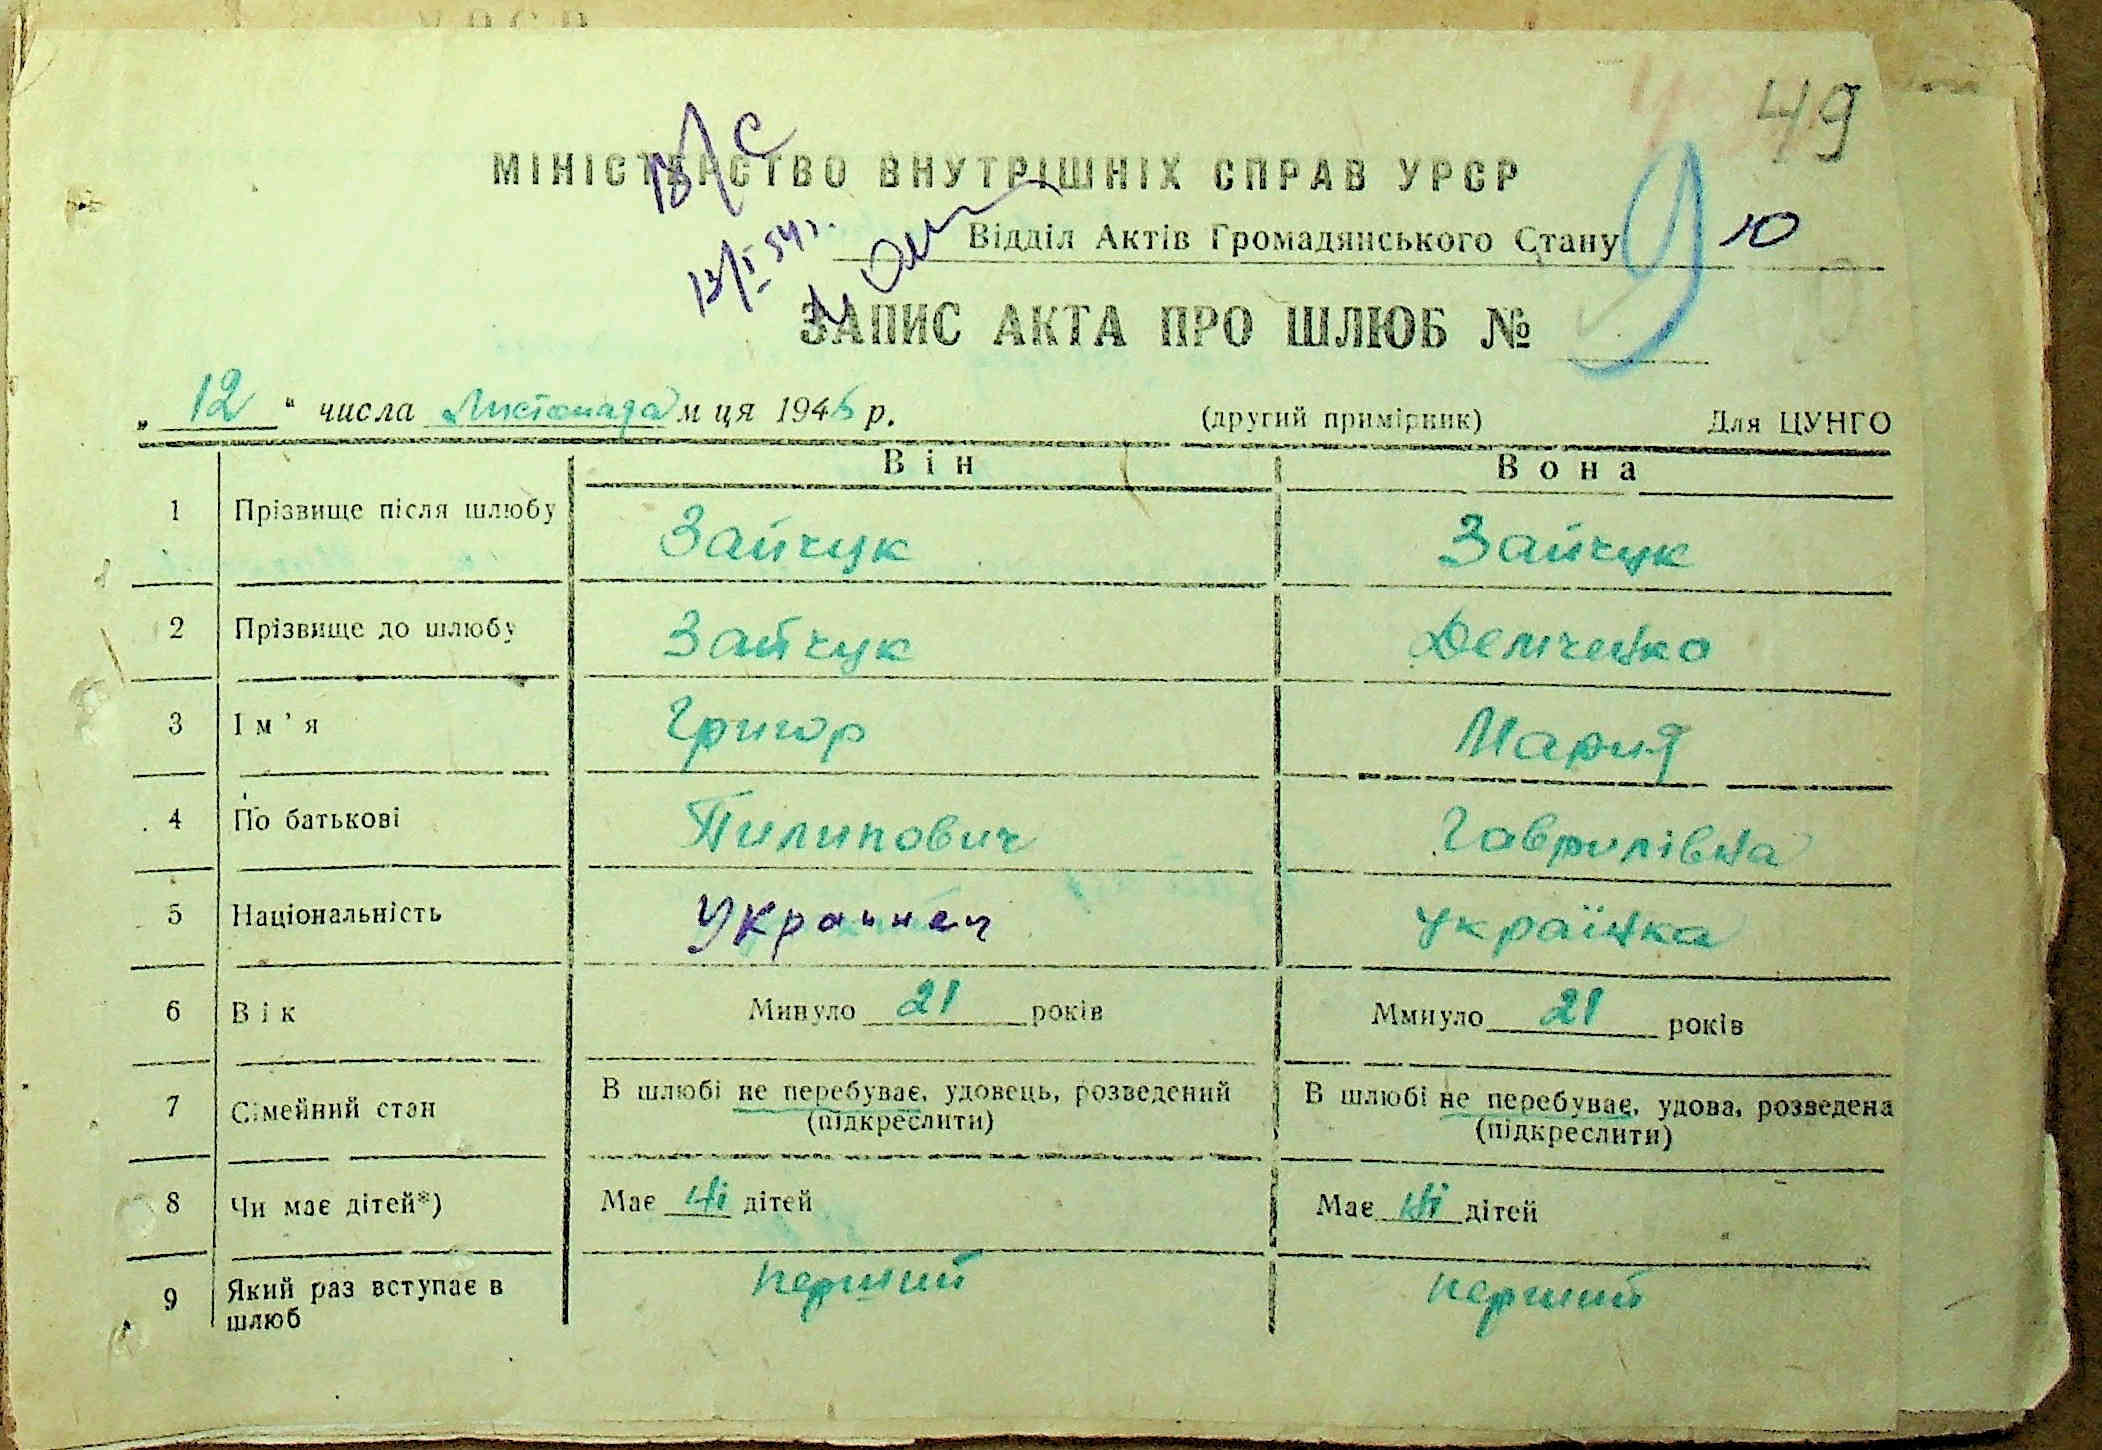 49
МІНІСТЕРСТВО ВНУТРІШНІХ СПРАВ УРСР
в/с
Відділ Актів Громадянського Стану
10
13/I 54 г.
ЗАПИС АКТА ПРО ШЛЮБ №
„ 12 “ числа Листопада м ця 1946 р. (другий примірник) Для ЦУНГО
Він Вона
1 Прізвище після шлюбу Зайчук Зайчук
2 Прізвище до шлюбу Зайчук Демченко
3 Ім'я Григор Мария
4 По батькові Пилипович Гаврилівна
5 Національність Украинец українка
6 Вік Минуло 21 років Ммнуло 21 років
7 Сімейний стан В шлюбі не перебуває, удовець, розведений В шлюбі не перебуває, удова, розведена
(підкреслити) (підкреслити)
8 Чи має дітей*) Має ні дітей Має ні дітей
9 Який раз вступає в перший перший
шлюб